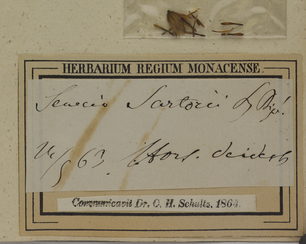 HERBARIUM REGIUM MONACENSE.
Senecio Sartorii
63. Hort.
Communicavit Dr. C. H. Schultz. 1864.